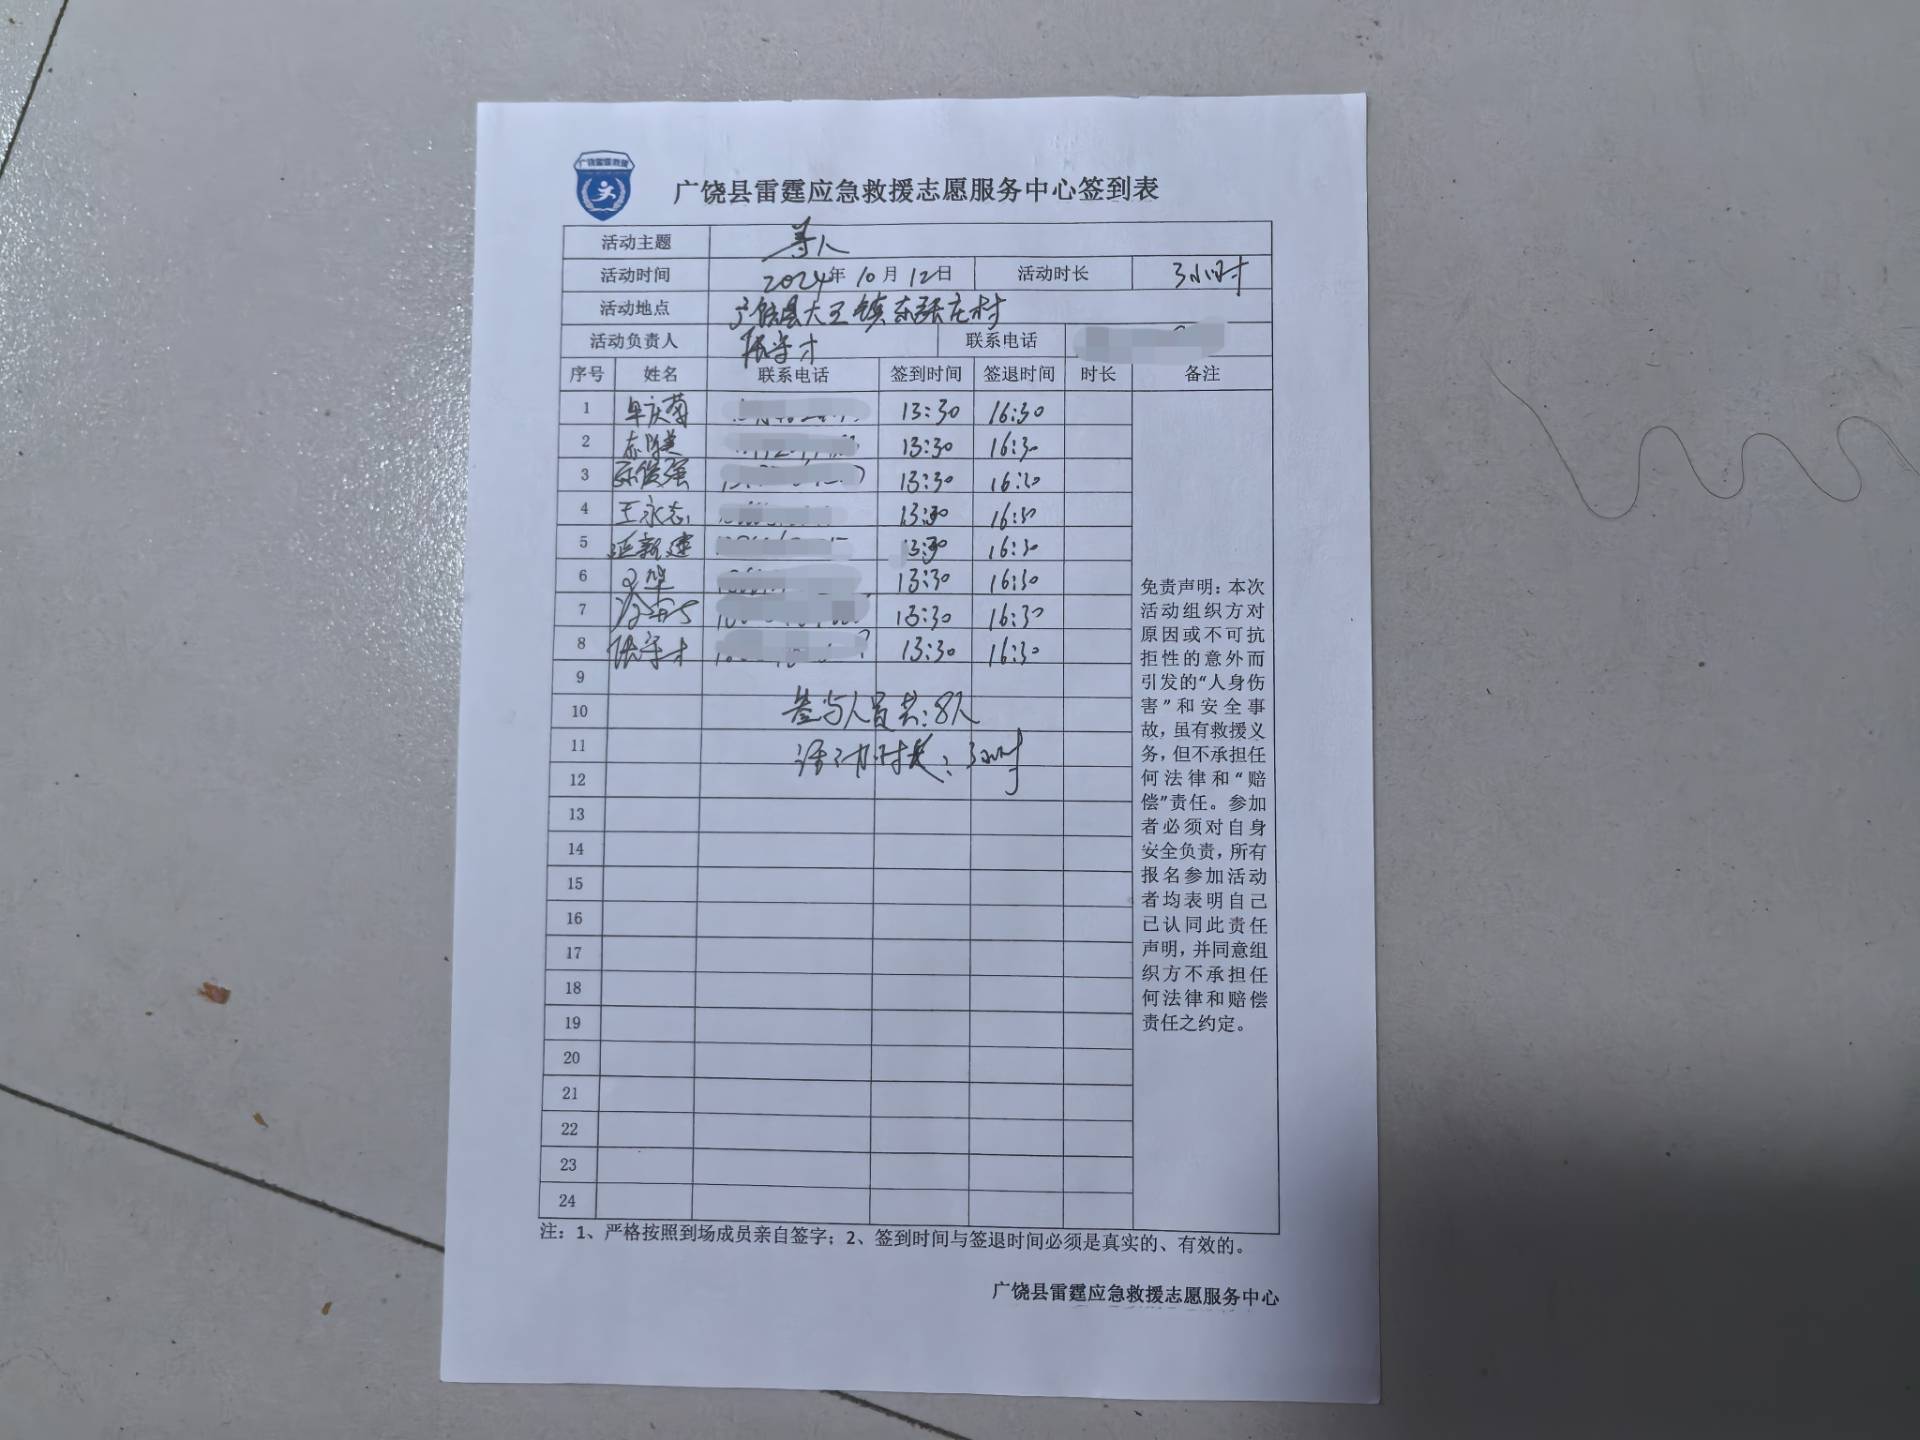 广饶雷霆救援
广饶县雷霆应急救援志愿服务中心签到表
活动主题 寻人
活动时间 2024年10月12日 活动时长 3小时
活动地点 广饶县大王镇东张庄村
活动负责人 张守才 联系电话
序号 姓名 联系电话 签到时间 签退时间 时长 备注
1 13:30 16:30
2 13:30 16:30
3 13:30 16:30
4 王永志 13:30 16:30
5 延新建 13:30 16:30
6 13:30 16:30
7 13:30 16:30
8 张守才 13:30 16:30
9
10 参与人员共:8人
11 活动时长:3小时
12
13
14
15
16
17
18
19
20
21
22
23
24
免责声明：本次
活动组织方对
原因或不可抗
拒性的意外而
引发的“人身伤
害”和安全事
故，虽有救援义
务，但不承担任
何法律和“赔
偿”责任。参加
者必须对自身
安全负责，所有
报名参加活动
者均表明自己
已认同此责任
声明，并同意组
织方不承担任
何法律和赔偿
责任之约定。
注：1、严格按照到场成员亲自签字；2、签到时间与签退时间必须是真实的、有效的。
广饶县雷霆应急救援志愿服务中心